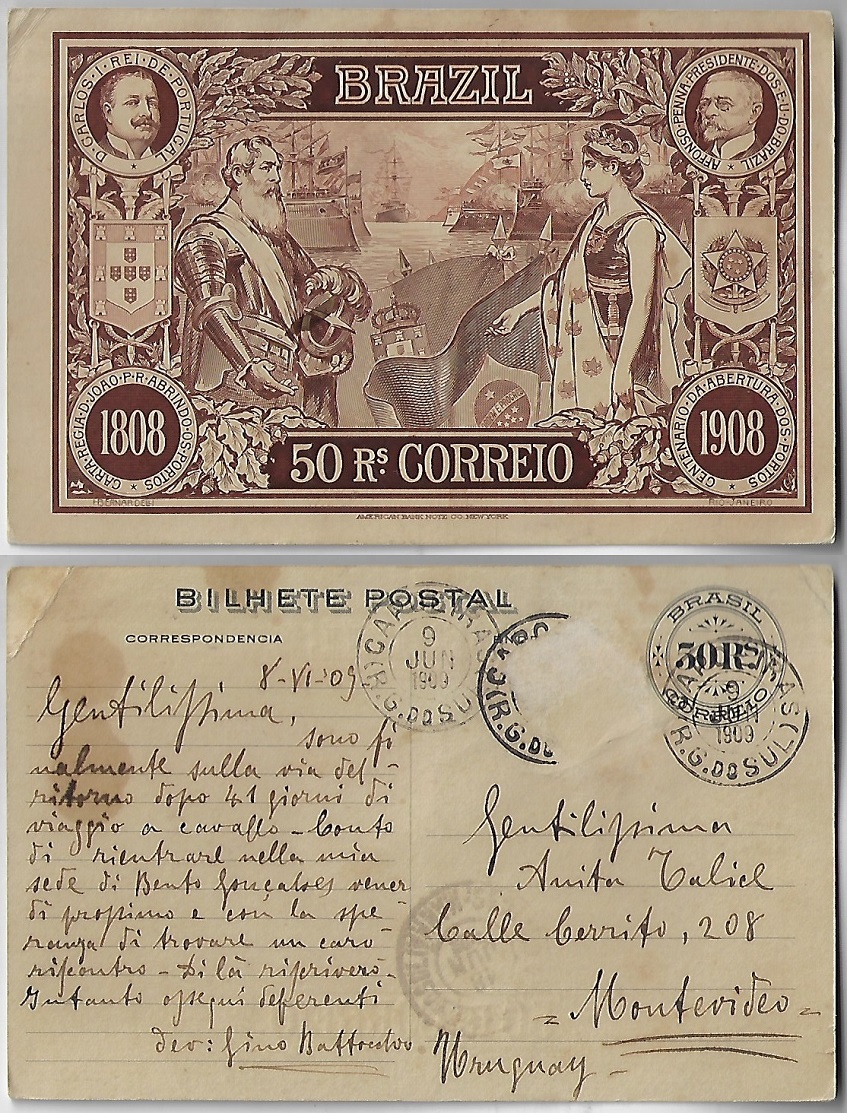 BRAZIL
D. CARLOS · I · REI · DE · PORTUGAL
AFFONSO · PENNA · PRESIDENTE · DOS · E · U · DO · BRAZIL
CARTA · REGIA · D · JOAO · P · R · ABRINDO · OS · PORTOS
1808
CENTENARIO · DA · ABERTURA · DOS · PORTOS
1908
50 RS. CORREIO
H. BERNARDELLI
RIO-JANEIRO
AMERICAN BANK NOTE CO. NEW YORK
BILHETE POSTAL
CORRESPONDENCIA
9
JUN
1909
(R.G. DO SUL)
(R.G. DO
BRASIL
50 RS
CORREIO
9
1909
R.G. DO SUL)
8-VI-09
Gentilissima,
sono fi
nalmente sulla via del
ritorno dopo 41 giorni di
viaggio a cavallo – Conto
di rientrare nella mia
sede di Bento Gonçalves vener
di prossimo e con la spe
ranza di trovare un caro
riscontro – Di là riscriverò –
Intanto ossequi deferenti
dev: Gino Battocchio
Gentilissima
Anita Talice
Calle Cerrito, 208
= Montevideo =
Uruguay –